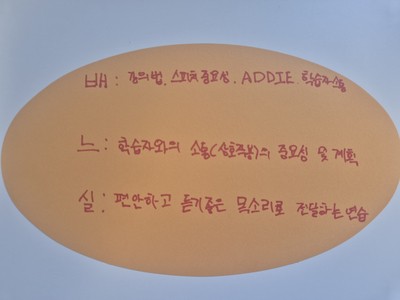 배 : 강의법, 스피치 중요성, ADDIE, 학습자 소통
느 : 학습자와의 소통(상호작용)의 중요성 및 계획
실 : 편안하고 듣기좋은 목소리로 전달하는 연습